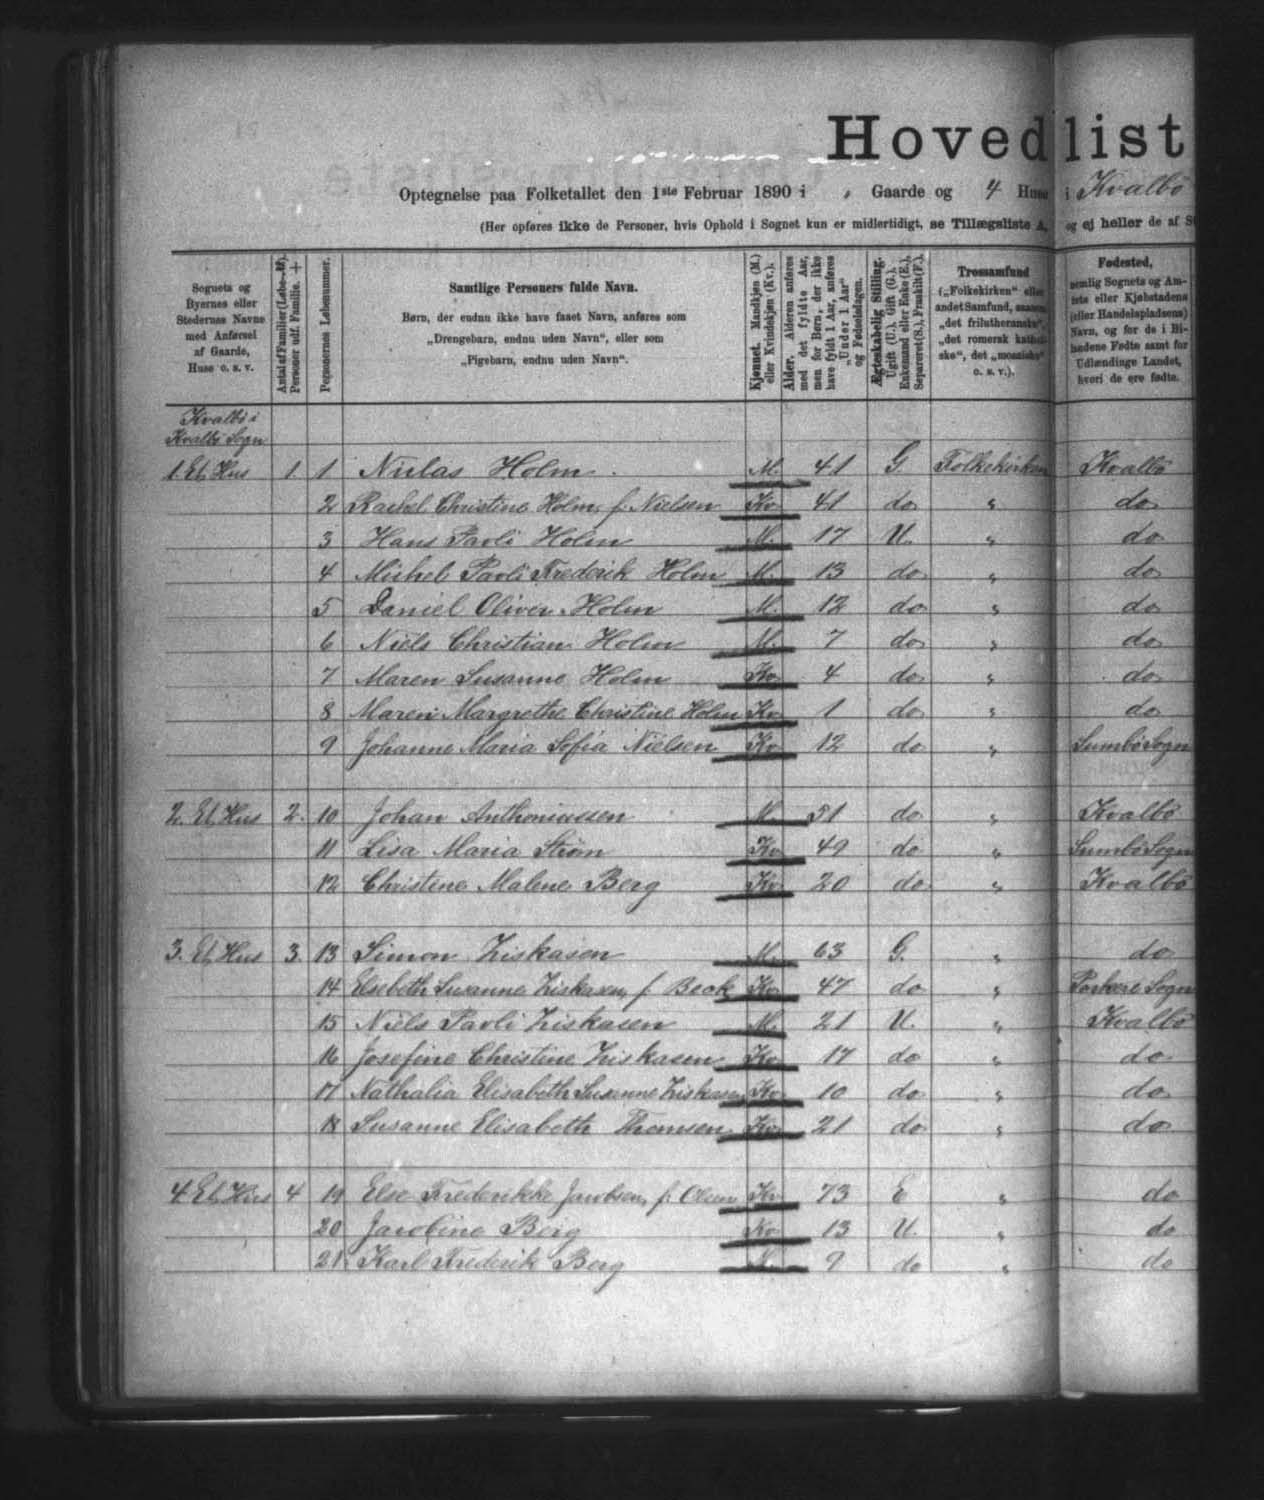 Hovedlist
Optegnelse paa Folketallet den 1ste Februar 1890 i „ Gaarde og 4 Huse i Kvalbö
(Her opføres ikke de Personer, hvis Ophold i Sognet kun er midlertidigt, se Tillægsliste A, og ej heller de af
Sognets og Byernes eller Stedernes Navne med Anførsel af Gaarde, Huse o. s. v.
Antal af Familier (Løbe-№). Personer udf. Familie. +
Personernes Løbenummer.
Samtlige Personers fulde Navn.
Børn, der endnu ikke have faaet Navn, anføres som
„Drengebarn, endnu uden Navn“, eller som
„Pigebarn, endnu uden Navn“.
Kjønnet. Mandkjøn (M.) eller Kvindekjøn (Kv.).
Alder. Alderen anføres med det fyldte Aar, men for Børn, der ikke have fyldt 1 Aar, anføres „Under 1 Aar“ og Fødselsdagen.
Ægteskabelig Stilling. Ugift (U.), Gift (G.), Enkemand eller Enke (E.), Separeret (S.), Fraskilt (F.).
Trossamfund („Folkekirken“ eller andet Samfund, saasom „det frilutheranske“, „det romersk katholske“, det „mosaiske“ o. s. v.).
Fødested, nemlig Sognets og Amtets eller Kjøbstadens (eller Handelspladsens) Navn, og for de i Bilandene Fødte samt for Udlændinge Landet, hvori de ere fødte.
Kvalbö i
Kvalbö Sogn
1. Et Hus 1. 1 Niclas Holm M. 41 G. Folkekirken Kvalbö
2 Rachel Christine Holm, f. Nielsen Kv 41 do „ do
3 Hans Pavli Holm M. 17 U. „ do
4 Michel Pavli Frederik Holm M. 13 do „ do
5 Daniel Oliver Holm M. 12 do „ do
6 Niels Christian Holm M. 7 do „ do
7 Maren Susanne Holm Kv 4 do „ do
8 Maren Margrethe Christine Holm Kv 1 do „ do
9 Johanne Maria Sofia Nielsen Kv 12 do „ Sumbö Sogn
2. Et Hus 2. 10 Johan Anthoniussen M. 51 do „ Kvalbö
11 Lisa Maria Strøm Kv 49 do „ Sumbö Sogn
12 Christine Malene Berg Kv 20 do „ Kvalbö
3. Et Hus 3. 13 Simon Ziskasen M. 63 G. „ do
14 Elsebeth Susanne Ziskasen, f. Beck Kv 47 do „ Porkere Sogn
15 Niels Pavli Ziskasen M. 21 U. „ Kvalbö
16 Josefine Christine Ziskasen Kv 17 do „ do
17 Nathalia Elisabeth Susanne Ziskasen Kv 10 do „ do
18 Susanne Elisabeth Thomsen Kv 21 do „ do
4 Et Hus 4 19 Else Frederikke Jacobsen, f. Olsen Kv 73 E „ do
20 Jacobine Berg Kv 13 U. „ do
21 Karl Frederik Berg M. 9 do „ do